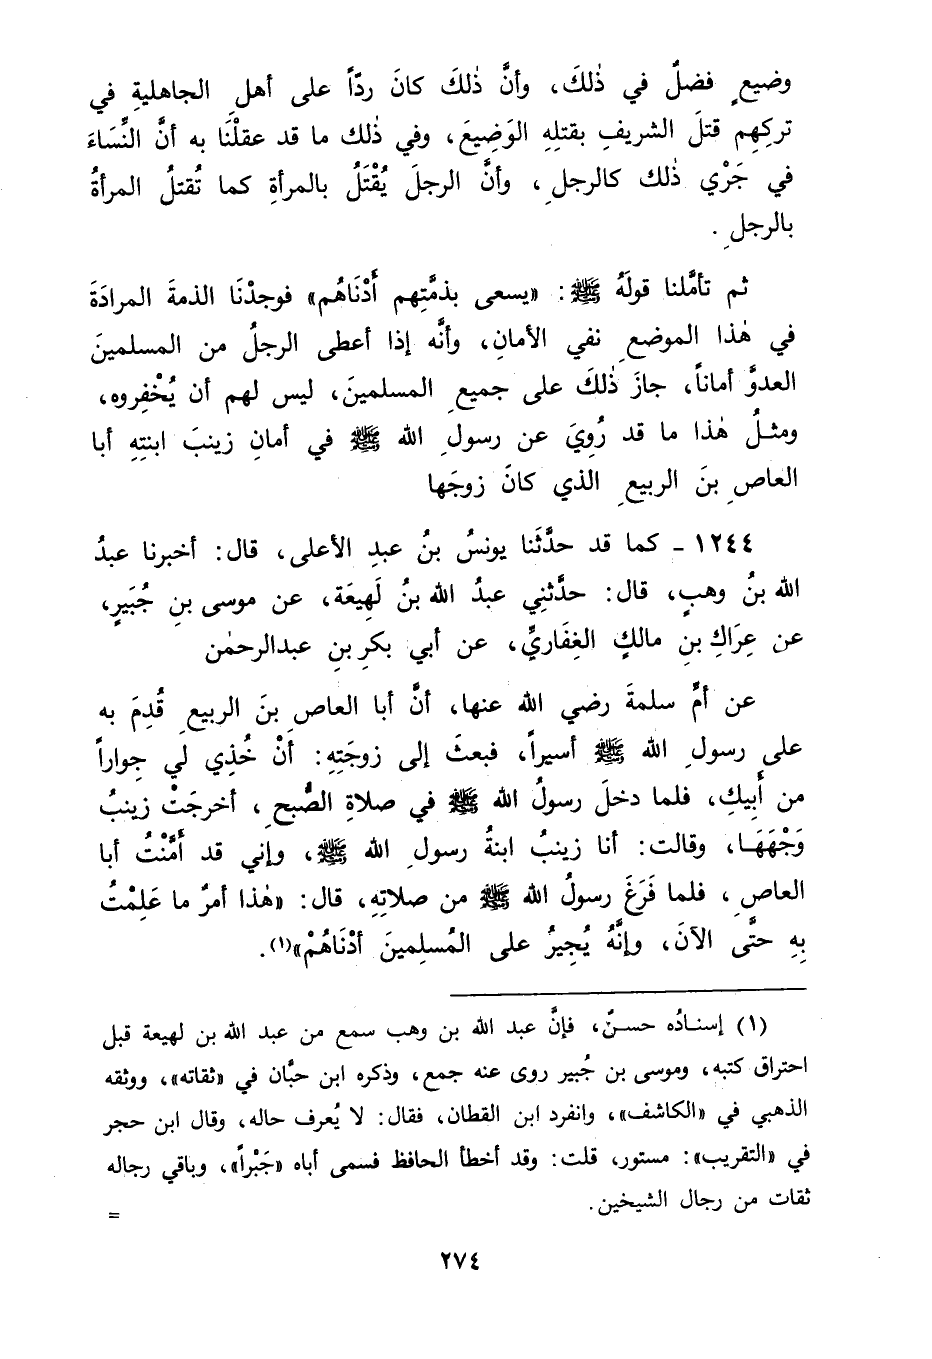 وضيعٍ فضلٌ في ذٰلكَ، وأنَّ ذٰلكَ كانَ ردّاً على أهلِ الجاهليةِ في
تركِهِم قتلَ الشريفِ بقتلِهِ الوَضِيعَ، وفي ذٰلك ما قد عقلْنَا به أنَّ النِّسَاءَ
في جَرْي ذٰلك كالرجلِ، وأنَّ الرجلَ يُقْتَلُ بالمرأةِ كما تُقتلُ المرأةُ
بالرجلِ.
ثم تأمَّلنا قولَهُ ﷺ: «يسعى بذمَّتِهم أَدْنَاهُم» فوجدْنَا الذمةَ المرادَةَ
في هٰذا الموضعِ نفي الأمانِ، وأنَّه إذا أعطى الرجلُ من المسلمينَ
العدوَّ أماناً، جازَ ذٰلكَ على جميعِ المسلمينَ، ليس لهم أن يُخْفِروه،
ومثلُ هٰذا ما قد رُوِيَ عن رسولِ الله ﷺ في أمانِ زينبَ ابنتِهِ أبا
العاصِ بنَ الربيعِ الذي كانَ زوجَها
١٢٤٤ - كما قد حدَّثَنا يونسُ بنُ عبدِ الأعلى، قال: أخبرنا عبدُ
الله بنُ وهبٍ، قال: حدَّثنِي عبدُ الله بنُ لَهِيعَة، عن موسى بنِ جُبَيرٍ،
عن عِرَاكِ بنِ مالكٍ الغِفَاريِّ، عن أبي بكرِ بنِ عبدالرحمٰن
عن أمِّ سلمةَ رضي الله عنها، أنَّ أبا العاصِ بنَ الربيعِ قُدِمَ به
على رسولِ الله ﷺ أسيراً، فبعثَ إلى زوجَتِهِ: أنْ خُذِي لي جِواراً
من أَبِيكِ، فلما دخلَ رسولُ الله ﷺ في صلاةِ الصُّبحِ، أخرجَتْ زينبُ
وَجْهَهَا، وقالت: أنا زينبُ ابنةُ رسولِ الله ﷺ، وإني قد أَمَّنْتُ أبا
العاصِ، فلما فَرَغَ رسولُ الله ﷺ من صلاتِهِ، قال: «هٰذا أمرٌ ما عَلِمْتُ
بِهِ حتَّى الآنَ، وإنَّهُ يُجِيرُ على المُسلِمينَ أدْنَاهُمْ»(١).
(١) إسنادُه حسنٌ، فإنَّ عبد الله بن وهب سمع من عبد الله بن لهيعة قبل
احتراق كتبه، وموسى بن جُبير روى عنه جمع، وذكره ابن حبَّان في «ثقاته»، ووثقه
الذهبي في «الكاشف»، وانفرد ابن القطان، فقال: لا يُعرف حاله، وقال ابن حجر
في «التقريب»: مستور، قلت: وقد أخطأ الحافظ فسمى أباه «جَبْراً»، وباقي رجاله
ثقات من رجال الشيخين. =
٢٧٤